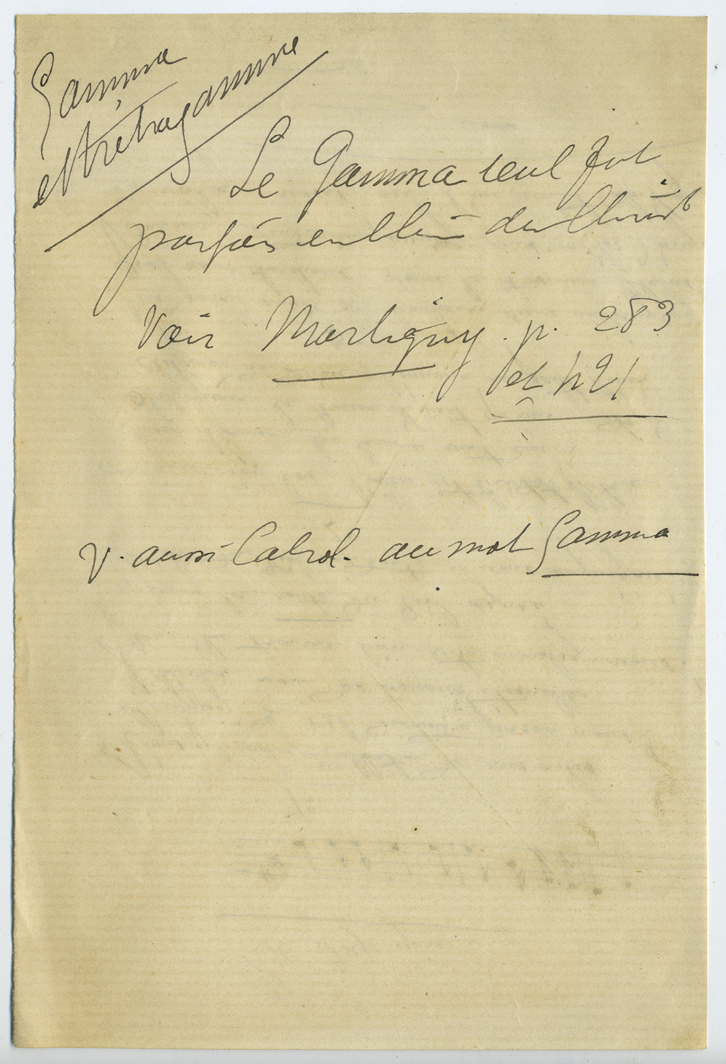 Gamma
et tétragamme
Le Gamma seul fut
parfois emblème du Christ
Voir Martigny. p. 283
et 421
V. aussi Cabrol. au mot Gamma